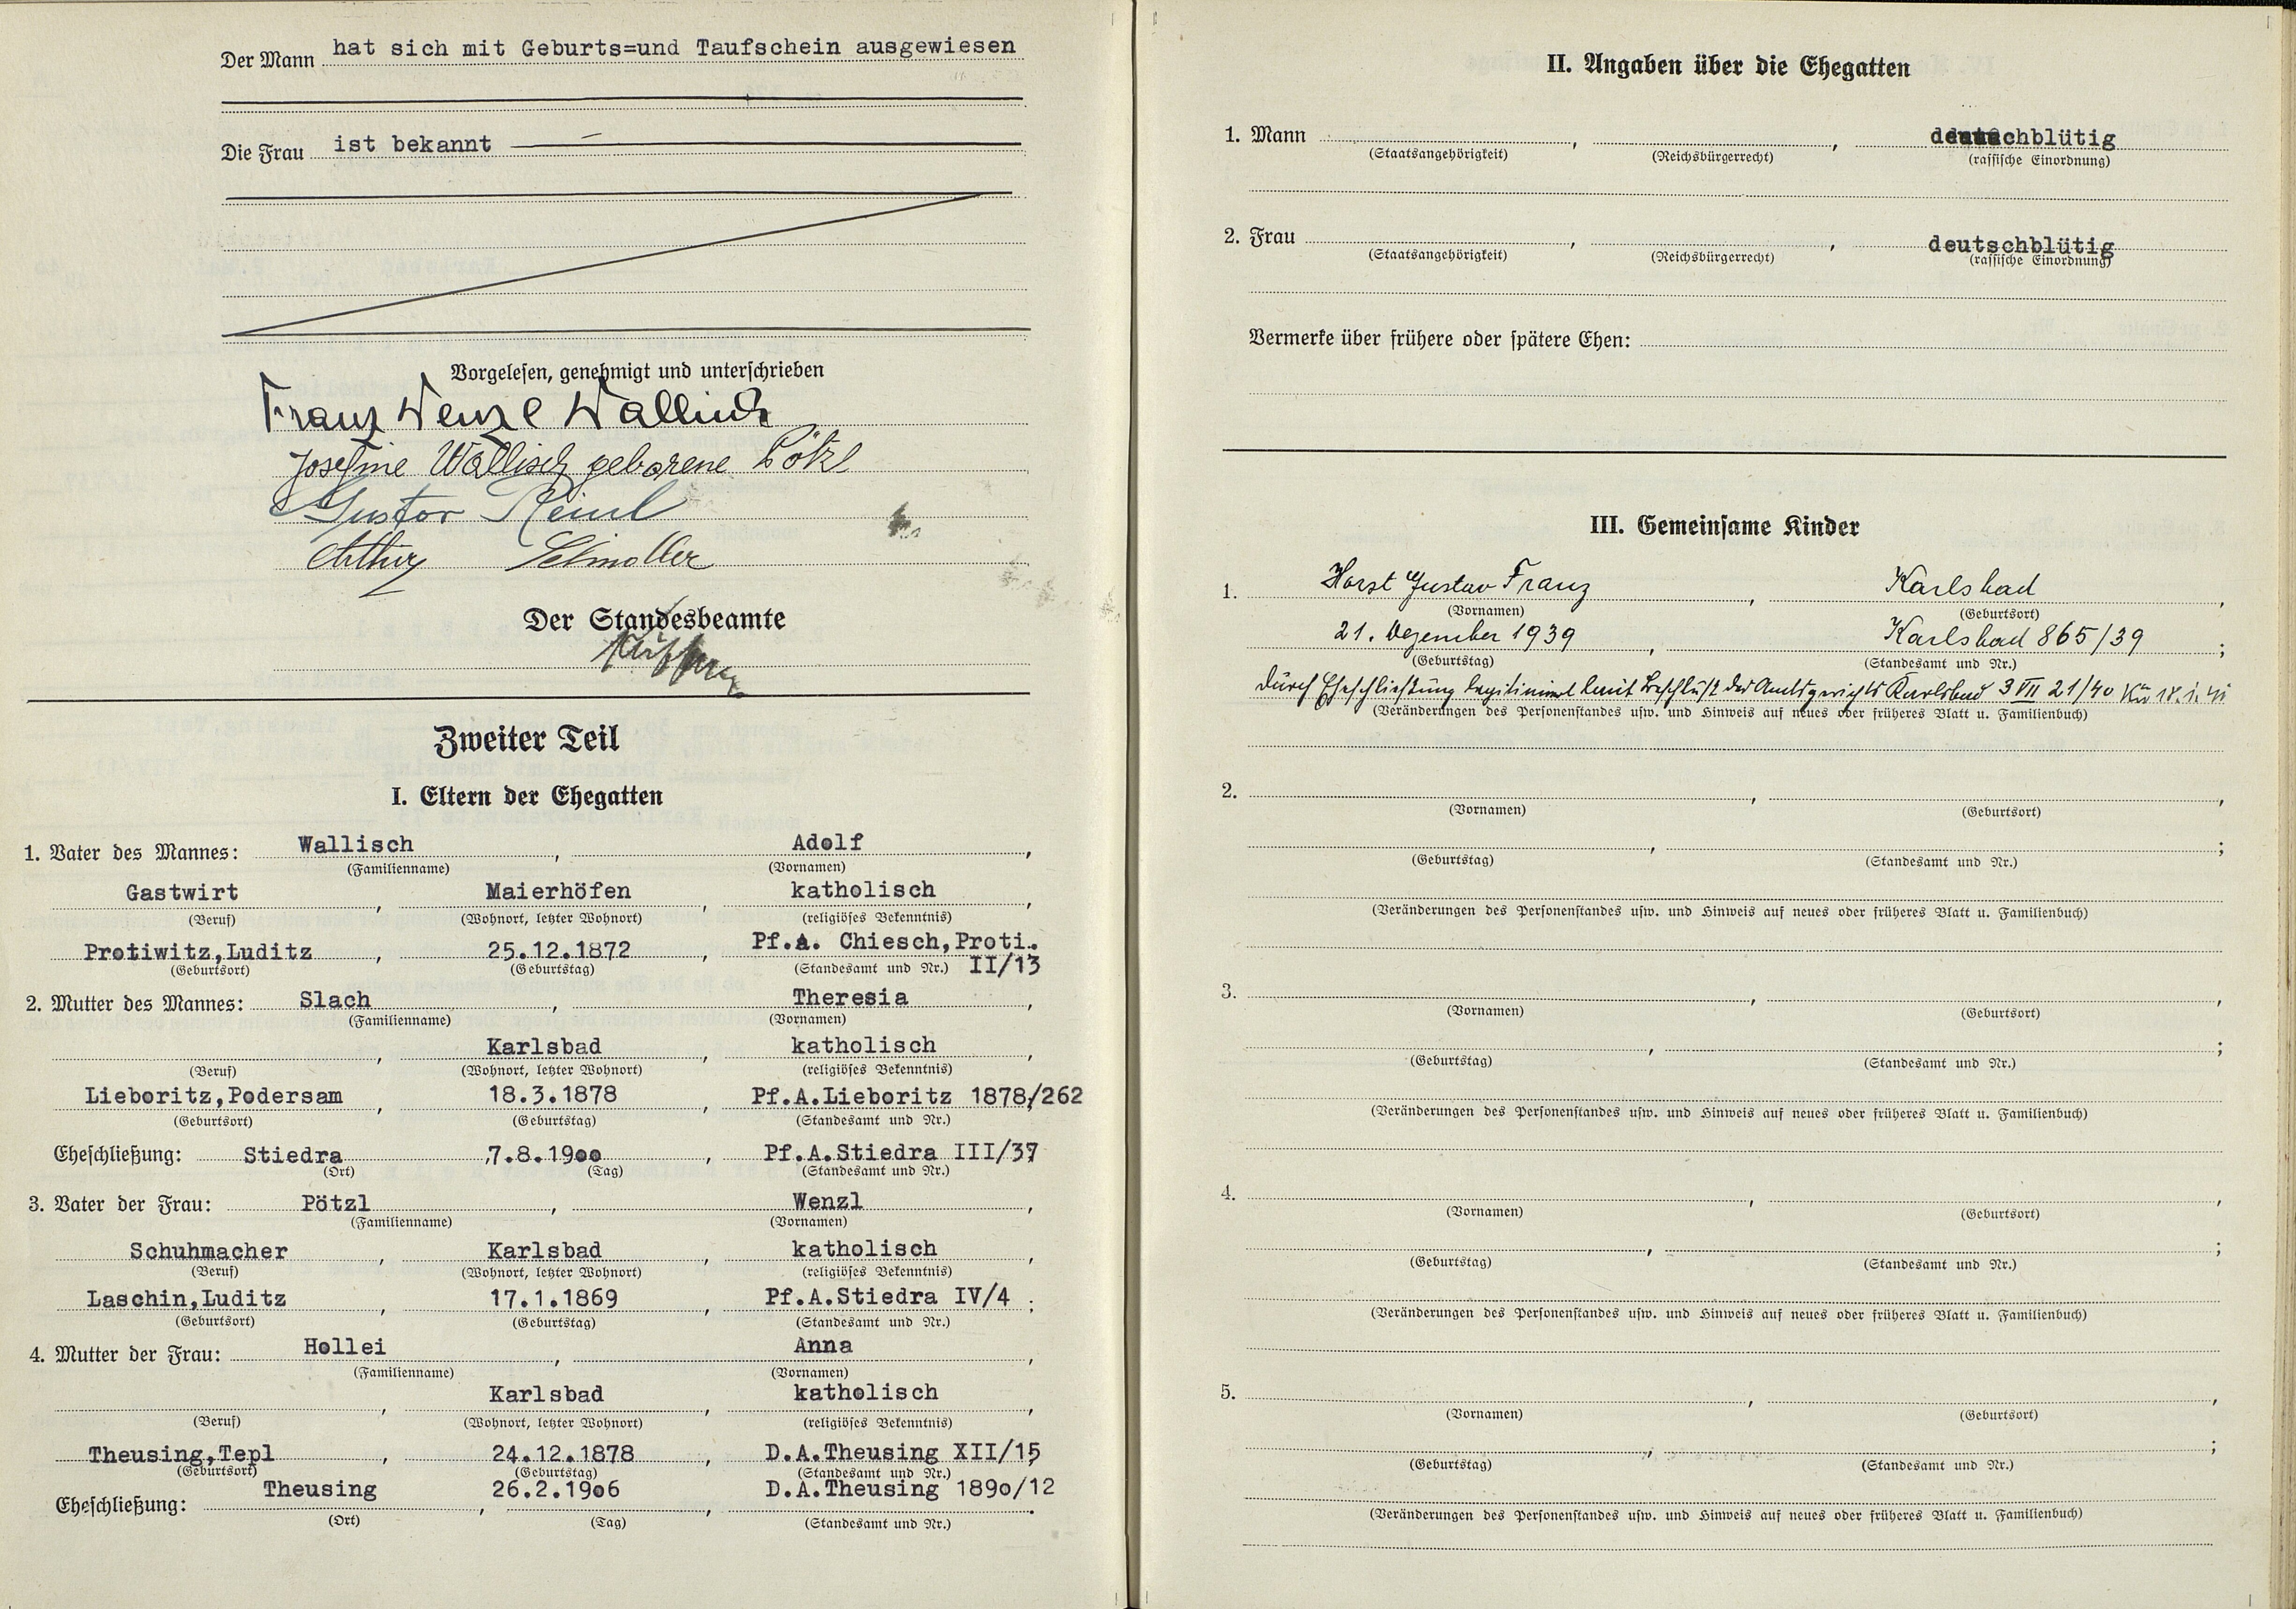 Der Mann hat sich mit Geburts=und Taufschein ausgewiesen
Die Frau ist bekannt
Vorgelesen, genehmigt und unterschrieben
Franz Wenzl Wallisch
Josefine Wallisch geborene Pötzl
Gustav Reinl
Arthur
Der Standesbeamte
Zweiter Teil
I. Eltern der Ehegatten
1. Vater des Mannes: Wallisch, Adolf,
(Familienname) (Vornamen)
Gastwirt, Maierhöfen, katholisch,
(Beruf) (Wohnort, letzter Wohnort) (religiöses Bekenntnis)
Protiwitz,Luditz, 25.12.1872, Pf.A. Chiesch,Proti.
(Geburtsort) (Geburtstag) (Standesamt und Nr.) II/13
2. Mutter des Mannes: Slach, Theresia,
(Familienname) (Vornamen)
, Karlsbad, katholisch,
(Beruf) (Wohnort, letzter Wohnort) (religiöses Bekenntnis)
Lieboritz,Podersam, 18.3.1878, Pf.A.Lieboritz 1878/262
(Geburtsort) (Geburtstag) (Standesamt und Nr.)
Eheschließung: Stiedra, 7.8.1900, Pf.A.Stiedra III/37
(Ort) (Tag) (Standesamt und Nr.)
3. Vater der Frau: Pötzl, Wenzl,
(Familienname) (Vornamen)
Schuhmacher, Karlsbad, katholisch,
(Beruf) (Wohnort, letzter Wohnort) (religiöses Bekenntnis)
Laschin,Luditz, 17.1.1869, Pf.A.Stiedra IV/4;
(Geburtsort) (Geburtstag) (Standesamt und Nr.)
4. Mutter der Frau: Hollei, Anna,
(Familienname) (Vornamen)
, Karlsbad, katholisch,
(Beruf) (Wohnort, letzter Wohnort) (religiöses Bekenntnis)
Theusing,Tepl, 24.12.1878, D.A.Theusing XII/15
(Geburtsort) (Geburtstag) (Standesamt und Nr.)
Eheschließung: Theusing, 26.2.1906, D.A.Theusing 1890/12.
(Ort) (Tag) (Standesamt und Nr.)
II. Angaben über die Ehegatten
1. Mann , , deutschblütig
(Staatsangehörigkeit) (Reichsbürgerrecht) (rassische Einordnung)
2. Frau , , deutschblütig
(Staatsangehörigkeit) (Reichsbürgerrecht) (rassische Einordnung)
Vermerke über frühere oder spätere Ehen:
III. Gemeinsame Kinder
1. Horst Gustav Franz, Karlsbad,
(Vornamen) (Geburtsort)
21. Dezember 1939, Karlsbad 865/39;
(Geburtstag) (Standesamt und Nr.)
durch Eheschließung legitimiert laut Beschluß des Amtsgerichts Karlsbad 3 VII 21/40
(Veränderungen des Personenstandes usw. und Hinweis auf neues oder früheres Blatt u. Familienbuch)
2. , ,
(Vornamen) (Geburtsort)
, ;
(Geburtstag) (Standesamt und Nr.)
(Veränderungen des Personenstandes usw. und Hinweis auf neues oder früheres Blatt u. Familienbuch)
3. , ,
(Vornamen) (Geburtsort)
, ;
(Geburtstag) (Standesamt und Nr.)
(Veränderungen des Personenstandes usw. und Hinweis auf neues oder früheres Blatt u. Familienbuch)
4. , ,
(Vornamen) (Geburtsort)
, ;
(Geburtstag) (Standesamt und Nr.)
(Veränderungen des Personenstandes usw. und Hinweis auf neues oder früheres Blatt u. Familienbuch)
5. , ,
(Vornamen) (Geburtsort)
, ;
(Geburtstag) (Standesamt und Nr.)
(Veränderungen des Personenstandes usw. und Hinweis auf neues oder früheres Blatt u. Familienbuch)